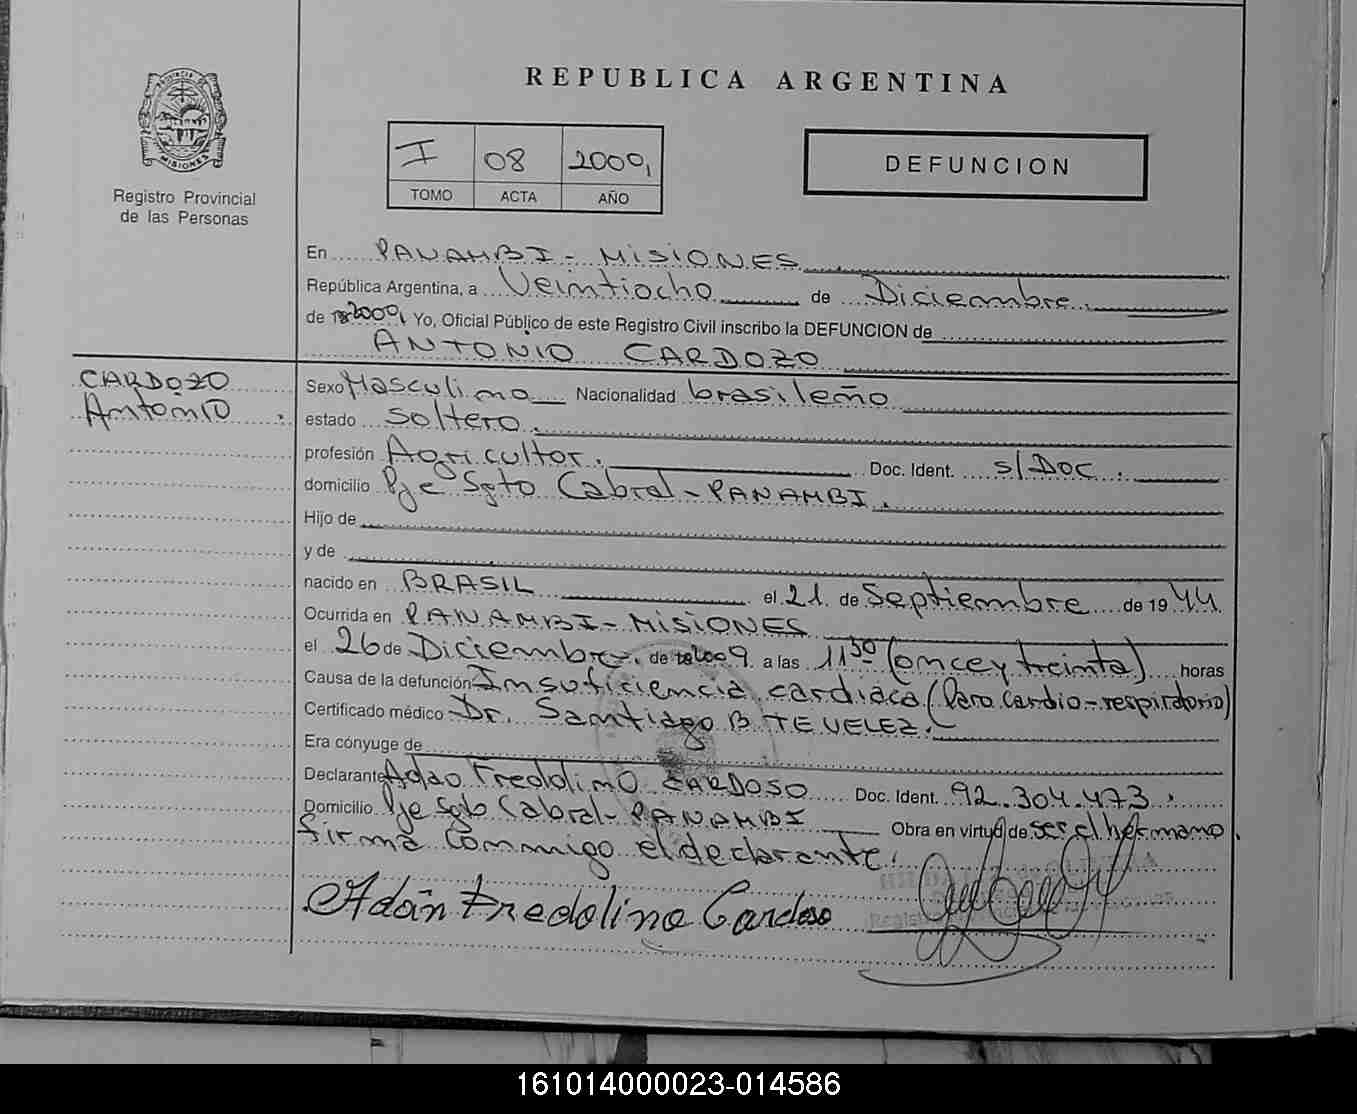 REPUBLICA ARGENTINA
PROVINCIA DE
MISIONES
Registro Provincial
de las Personas
I 08 2009
TOMO ACTA AÑO
DEFUNCION
En PANAMBI - MISIONES
República Argentina, a Veintiocho de Diciembre
de 2009 Yo, Oficial Público de este Registro Civil inscribo la DEFUNCION de
ANTONIO CARDOZO
CARDOZO
Antonio
Sexo Masculino Nacionalidad brasileño
estado Soltero.
profesión Agricultor. Doc. Ident. s/Doc.
domicilio Pje Sgto Cabral - PANAMBI.
Hijo de
y de
nacido en BRASIL el 21 de Septiembre de 19 44
Ocurrida en PANAMBI - MISIONES
el 26 de Diciembre de 2009 a las 11 30 (once y treinta) horas
Causa de la defunción Insuficiencia cardiaca (Paro Cardio-respiratorio)
Certificado médico Dr. Santiago B TEVELEZ.
Era cónyuge de
Declarante Adao Fredolino CARDOSO Doc. Ident. 92.304.473.
Domicilio Pje Sgto Cabral - PANAMBI Obra en virtud de ser el hermano.
firma conmigo el declarante.
Adão Fredolino Cardoso
161014000023-014586